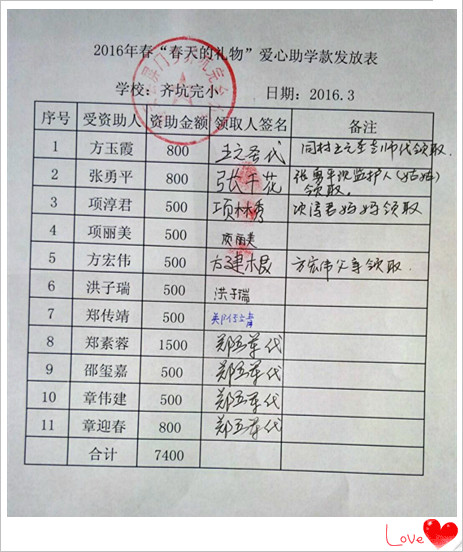 2016年春“春天的礼物”爱心助学款发放表
学校：齐坑完小 日期：2016.3
序号 受资助人 资助金额 领取人签名 备注
1 方玉霞 800 代 同村 代领取.
2 张勇平 800 张 花 张勇平 监护人
领取.
3 项淳君 500 项林秀 妈妈领取
4 项丽美 500 项丽美
5 方宏伟 500 方建根 方宏伟父亲领取.
6 洪子瑞 500 洪子瑞
7 郑传靖 500 郑传靖
8 郑素蓉 1500 郑 代
9 邵玺嘉 500 郑 代
10 章伟建 500 郑 代
11 章迎春 800 郑 代
合计 7400
Love